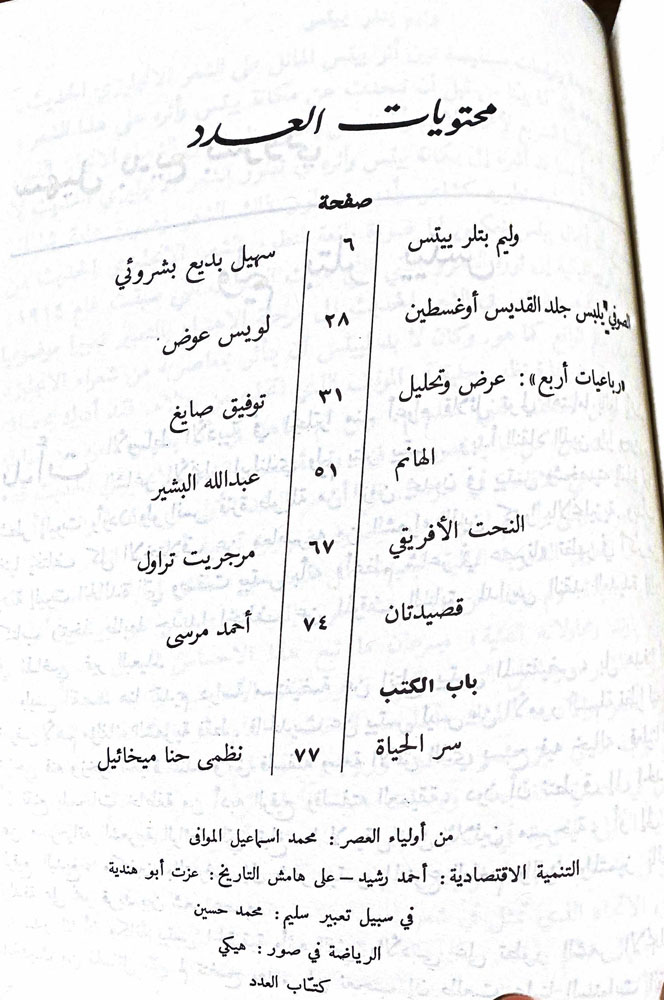 محتويات العدد
صفحة
وليم بتلر ييتس ٦ سهيل بديع بشروئي
الصوفي يلبس جلد القديس أوغسطين ٢٨ لويس عوض
«رباعيات أربع»: عرض وتحليل ٣١ توفيق صايغ
الهانم ٥١ عبدالله البشير
النحت الأفريقي ٦٧ مرجريت تراول
قصيدتان ٧٤ أحمد مرسى
باب الكتب
سر الحياة ٧٧ نظمى حنا ميخائيل
من أولياء العصر: محمد اسماعيل الموافى
التنمية الاقتصادية: أحمد رشيد — على هامش التاريخ: عزت أبو هندية
في سبيل تعبير سليم: محمد حسين
الرياضة في صور: هيكي
كتّاب العدد